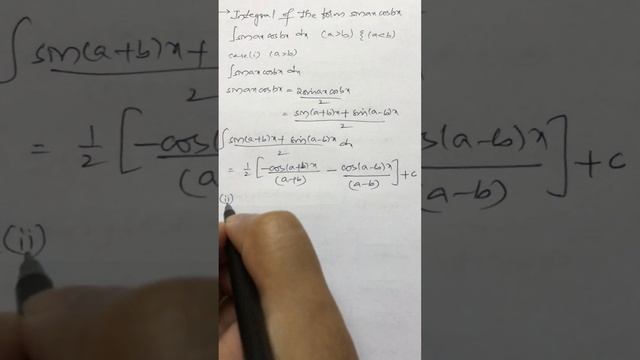 → Integral of the form sinax cosbx
∫sinax cosbx dx (a>b) & (a<b)
case(i) (a>b)
∫sinax cosbx dx
sinax cosbx = 2sinax cosbx / 2
= sin(a+b)x + sin(a-b)x / 2
∫ sin(a+b)x + sin(a-b)x / 2 dx
= 1/2 [ -cos(a+b)x / (a+b) - cos(a-b)x / (a-b) ] + c
(ii)